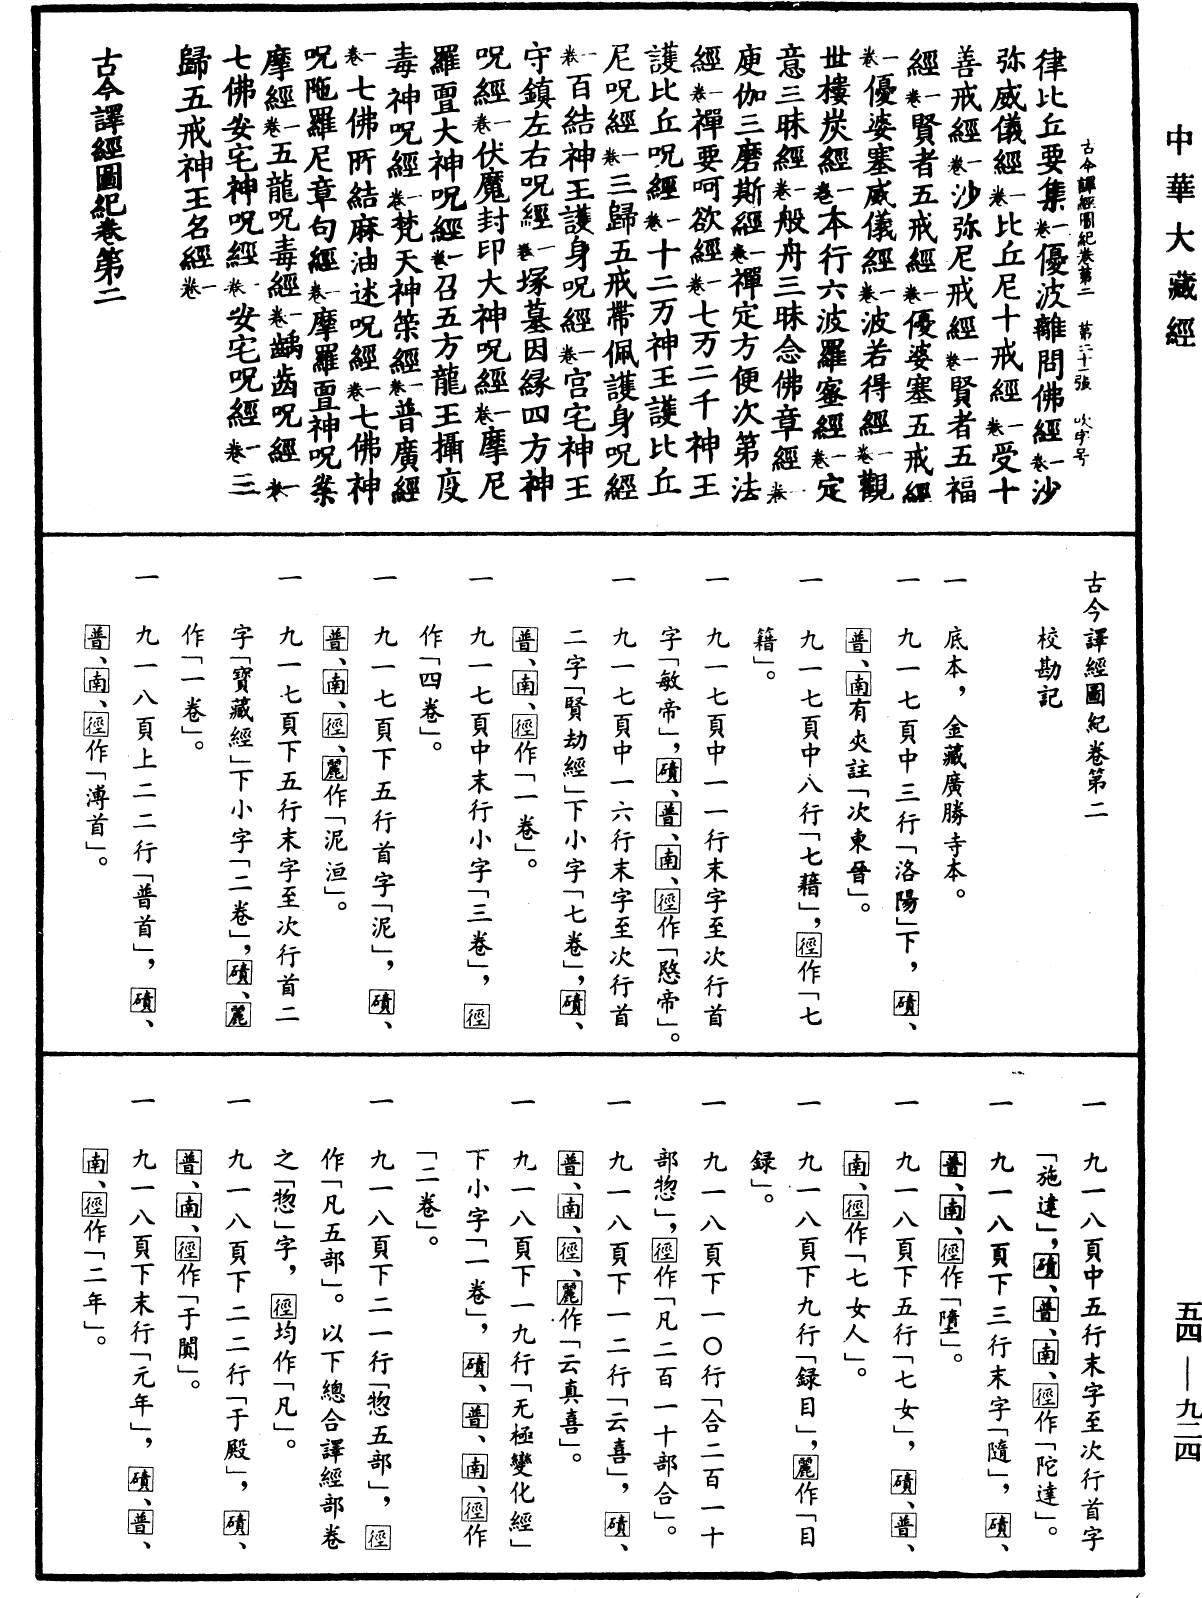 中華大藏經
古今譯經圖紀卷第二　第二十二張　吹字号
律比丘要集一卷優波離問佛經一卷沙
弥威儀經一卷比丘尼十戒經一卷受十
善戒經一卷沙弥尼戒經一卷賢者五福
經一卷賢者五戒經一卷優婆塞五戒經
一卷優婆塞威儀經一卷波若得經一卷觀
世樓炭經一卷本行六波羅蜜經一卷定
意三昧經一卷般舟三昧念佛章經一卷
庾伽三磨斯經一卷禪定方便次第法
經一卷禪要呵欲經一卷七万二千神王
護比丘呪經一卷十二万神王護比丘
尼呪經一卷三歸五戒帶佩護身呪經
一卷百結神王護身呪經一卷宮宅神王
守鎮左右呪經一卷塚墓因緣四方神
呪經一卷伏魔封印大神呪經一卷摩尼
羅亶大神呪經一卷召五方龍王攝疫
毒神呪經一卷梵天神筞經一卷普廣經
一卷七佛所結麻油述呪經一卷七佛神
呪陁羅尼章句經一卷摩羅亶神呪案
摩經一卷五龍呪毒經一卷齲齒呪經一卷
七佛安宅神呪經一卷安宅呪經一卷三
歸五戒神王名經一卷
古今譯經圖紀卷第二
古今譯經圖紀卷第二
校勘記
一　底本，金藏廣勝寺本。
一　九一七頁中三行「洛陽」下，磧、
普、南有夾註「次東晉」。
一　九一七頁中八行「七藉」，徑作「七
籍」。
一　九一七頁中一一行末字至次行首
字「敏帝」，磧、普、南、徑作「愍帝」。
一　九一七頁中一六行末字至次行首
二字「賢劫經」下小字「七卷」，磧、
普、南、徑作「一卷」。
一　九一七頁中末行小字「三卷」，徑
作「四卷」。
一　九一七頁下五行首字「泥」，磧、
普、南、徑、麗作「泥洹」。
一　九一七頁下五行末字至次行首二
字「寶藏經」下小字「二卷」，磧、麗
作「一卷」。
一　九一八頁上二二行「普首」，磧、
普、南、徑作「溥首」。
一　九一八頁中五行末字至次行首字
「施達」，磧、普、南、徑作「陀達」。
一　九一八頁下三行末字「隨」，磧、
普、南、徑作「墮」。
一　九一八頁下五行「七女」，磧、普、
南、徑作「七女人」。
一　九一八頁下九行「録目」，麗作「目
録」。
一　九一八頁下一〇行「合二百一十
部惣」，徑作「凡二百一十部合」。
一　九一八頁下一二行「云喜」，磧、
普、南、徑、麗作「云真喜」。
一　九一八頁下一九行「无極變化經」
下小字「一卷」，磧、普、南、徑作
「二卷」。
一　九一八頁下二一行「惣五部」，徑
作「凡五部」。以下總合譯經部卷
之「惣」字，徑均作「凡」。
一　九一八頁下二二行「于殿」，磧、
普、南、徑作「于闐」。
一　九一八頁下末行「元年」，磧、普、
南、徑作「二年」。
五四—九二四